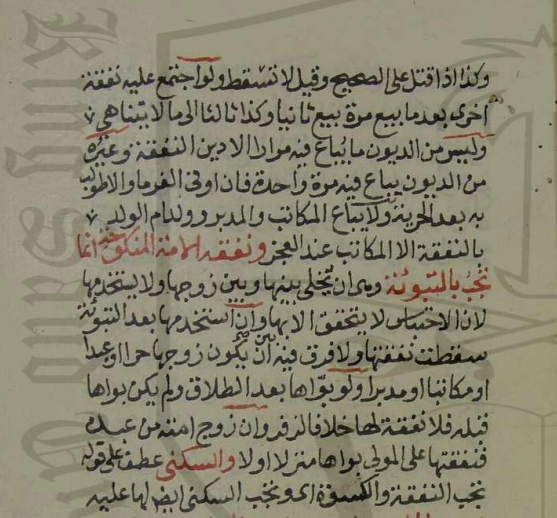 وكذا اذا قتل على الصحيح وقيل لا تسقط ولو اجتمع عليه نفقة
اخرى بعدما بيع مرة بيع ثانيا وكذا ثالثا الى ما لا يتناهى
وليس من الديون ما يباع فيه مرارا الا دين النفقة وغيره
من الديون يباع فيه مرة واحدة فان اوفى الغرما والا طولب
به بعد الحرية ولا يباع المكاتب والمدبر وولد ام الولد
بالنفقة الا المكاتب عند العجز ونفقة الامة المنكوحة انما
تجب بالتبوئة وهى ان يخلى بينها وبين زوجها ولا يستخدمها
لان الاحتباس لا يتحقق الا بها وان استخدمها بعد التبوئة
سقطت نفقتها ولا فرق فيه بين ان يكون زوجها حرا او عبدا
او مكاتبا او مدبرا ولو بوأها بعد الطلاق ولم يكن بوأها
قبله فلا نفقة لها خلافا لزفر وان زوج امته من عبده
فنفقتها على المولى بوأها منزلا اولا والسكنى عطف على قوله
تجب النفقة والكسوة اى وتجب السكنى ايضا لها عليه